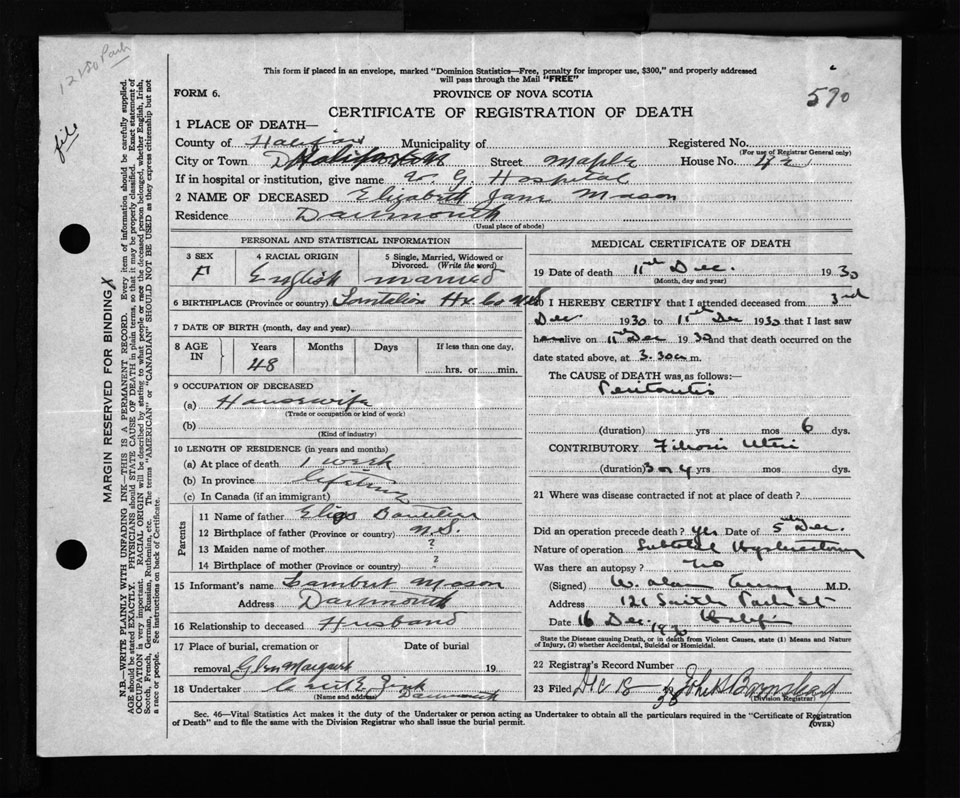 This form if placed in an envelope, marked "Dominion Statistics—Free, penalty for improper use, $300," and properly addressed
will pass through the Mail "FREE"
FORM 6.
PROVINCE OF NOVA SCOTIA
590
CERTIFICATE OF REGISTRATION OF DEATH
121 So Park
file
MARGIN RESERVED FOR BINDING
N.B.—WRITE PLAINLY WITH UNFADING INK—THIS IS A PERMANENT RECORD. Every item of information should be carefully supplied.
AGE should be stated EXACTLY. PHYSICIANS should STATE CAUSE OF DEATH in plain terms, so that it may be properly classified. Exact statement of
OCCUPATION is very important. RACIAL ORIGIN will be described by stating to what people or race the deceased person belonged, whether English, Irish,
Scotch, French, German, Russian, Ruthenian, etc. The terms "AMERICAN" or "CANADIAN" SHOULD NOT BE USED as they express citizenship but not
a race or people. See instructions on back of Certificate.
1 PLACE OF DEATH—
County of Halifax Municipality of Registered No.
(For use of Registrar General only)
City or Town Halifax Street Maple House No. 42
If in hospital or institution, give name V. G. Hospital
2 NAME OF DECEASED Elizabeth Jane Mason
Residence Dartmouth
(Usual place of abode)
PERSONAL AND STATISTICAL INFORMATION
3 SEX 4 RACIAL ORIGIN 5 Single, Married, Widowed or
Divorced. (Write the word)
F English Married
6 BIRTHPLACE (Province or country) Hx. Co N.S
7 DATE OF BIRTH (month, day and year)
8 AGE IN Years Months Days If less than one day,
48 hrs. or min.
9 OCCUPATION OF DECEASED
(a) Housewife
(Trade or occupation or kind of work)
(b)
(Kind of industry)
10 LENGTH OF RESIDENCE (in years and months)
(a) At place of death 1 week
(b) In province lifetime
(c) In Canada (if an immigrant)
Parents
11 Name of father
12 Birthplace of father (Province or country) N.S.
13 Maiden name of mother ?
14 Birthplace of mother (Province or country) ?
15 Informant's name Lambert Mason
Address Dartmouth
16 Relationship to deceased Husband
17 Place of burial, cremation or Date of burial
removal Glen Margaret 19
18 Undertaker Zink Dartmouth
(Name and address)
MEDICAL CERTIFICATE OF DEATH
19 Date of death 11th Dec. 1930
(Month, day and year)
20 I HEREBY CERTIFY that I attended deceased from 3rd
Dec 1930 to 11th Dec 1930 that I last saw
h alive on 11th Dec 1930 and that death occurred on the
date stated above, at 3.30 a m.
The CAUSE of DEATH was as follows:—
Peritonitis
(duration) yrs mos 6 dys.
CONTRIBUTORY Fibroid Uteri
(duration) 3 or 4 yrs mos dys.
21 Where was disease contracted if not at place of death?
Did an operation precede death? Yes Date of 5th Dec.
Nature of operation Subtotal Hysterectomy
Was there an autopsy? No
(Signed) W. Alan Curry M.D.
Address 121 South Park St
Date 16 Dec. 1930 Halifax
State the Disease causing Death, or in death from Violent Causes, state (1) Means and Nature
of Injury, (2) whether Accidental, Suicidal or Homicidal.
22 Registrar's Record Number
23 Filed Dec 18 30 John Barnstead
(Division Registrar)
Sec. 46—Vital Statistics Act makes it the duty of the Undertaker or person acting as Undertaker to obtain all the particulars required in the "Certificate of Registration
of Death" and to file the same with the Division Registrar who shall issue the burial permit.
(OVER)